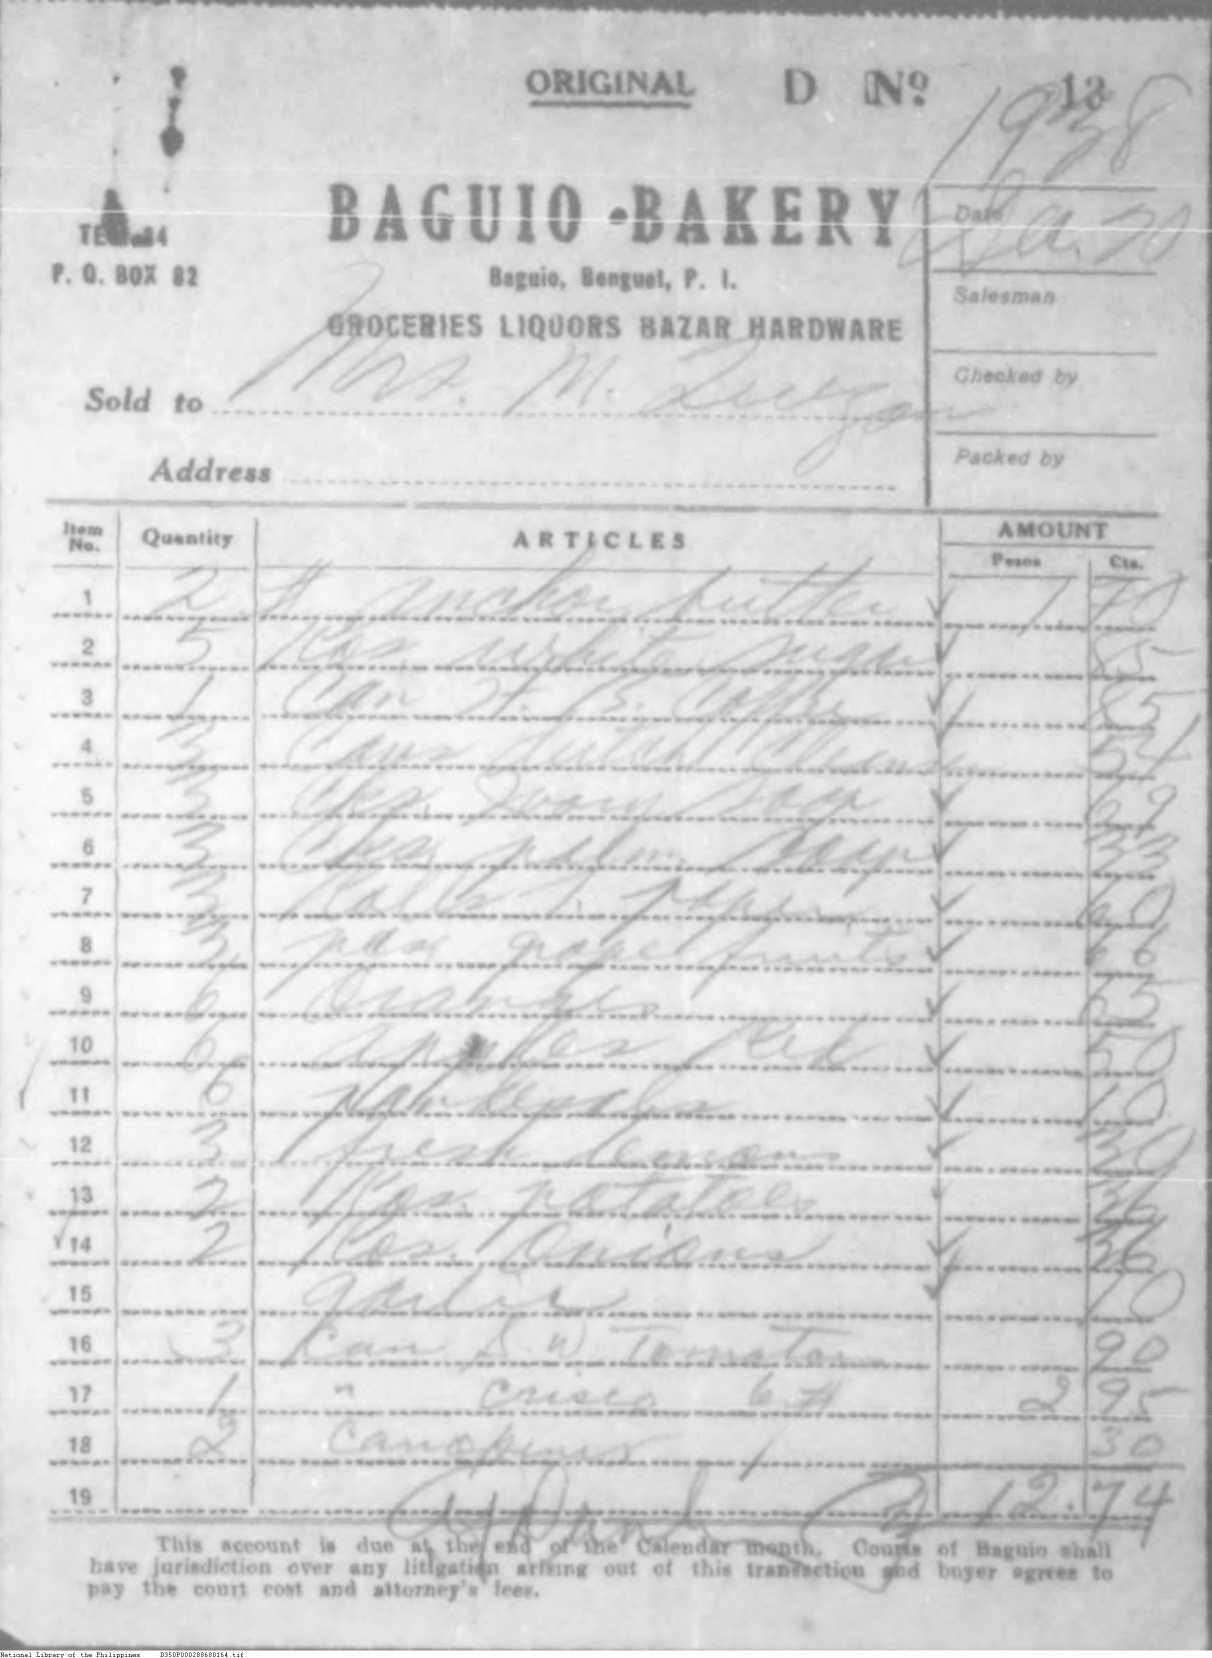 ORIGINAL D No. 13
1938
BAGUIO BAKERY
Date Ja. 20
TEL. 24
P. O. BOX 82
Baguio, Benguet, P. I.
Salesman
GROCERIES LIQUORS BAZAR HARDWARE
Checked by
Sold to Mrs. M. Quezon
Packed by
Address
Item No. Quantity ARTICLES AMOUNT
Pesos Cts.
1 2 # Anchor butter 1 70
2 5 Kos white sugar 85
3 1 Can H. B. Coffee 85
4 3 Cans dutch Cleanser 54
5 3 Cks. Ivory Soap 69
6 3 Cks palm. Soap 33
7 3 Rolls T. paper 60
8 3 pcs grape fruits 66
9 6 Oranges
10 6 Apples Red 50
11 6 10
12 3 fresh lemons 30
13 2 Kos. potatoes 36
14 2 Kos. Onions 36
15 garlic 10
16 3 Can S. W Tomatoes 90
17 1 " Crisco 6 # 2 95
18 2 Canopeners 30
19 12.74
This account is due at the end of the Calendar month. Courts of Baguio shall
have jurisdiction over any litigation arising out of this transaction and buyer agrees to
pay the court cost and attorney's fees.
National Library of the Philippines D350P000288680164.tif